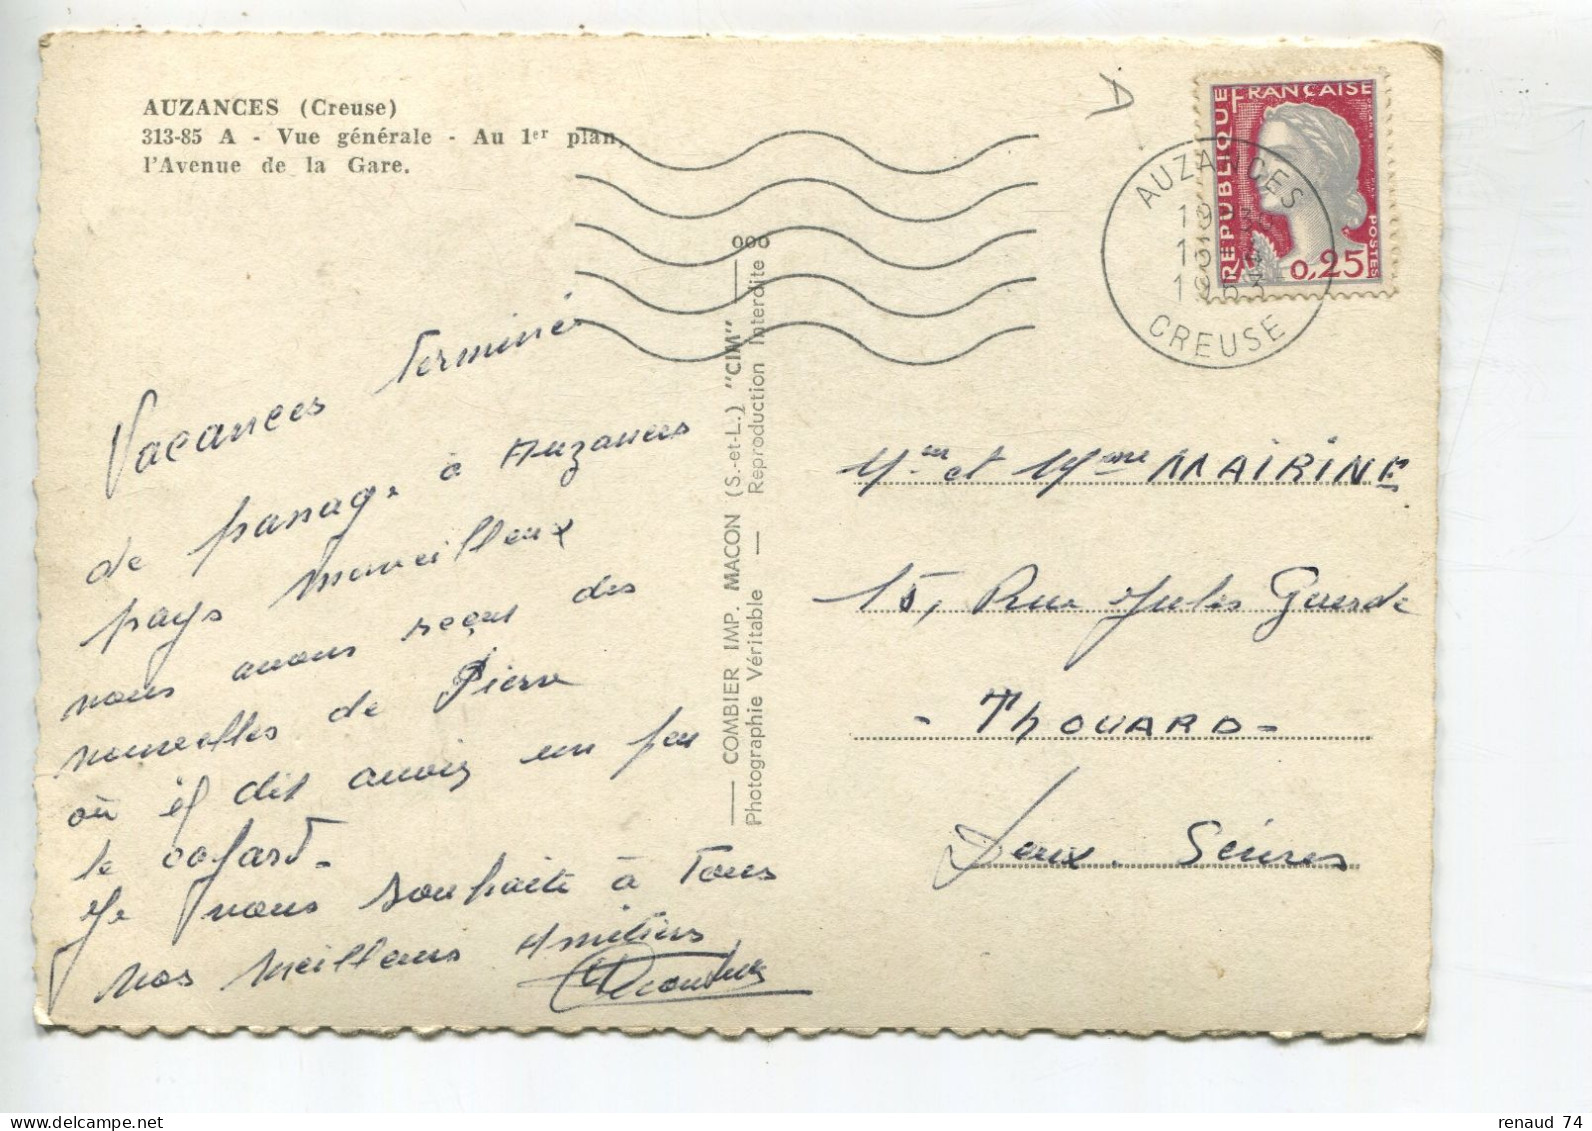 AUZANCES (Creuse)
313-85 A - Vue générale - Au 1er plan,
l'Avenue de la Gare.
A
RÉPUBLIQUE FRANÇAISE
POSTES
0,25
AUZANCES
CREUSE
Vacances terminés
de passage à Auzances
pays merveilleux
nous avons reçus des
nouvelles de Pierre
où il dit avoir un peu
le cafard-
Je vous souhaite à Tous
nos meilleurs Amitiés
COMBIER IMP. MACON (S.-et-L.) "CIM"
Photographie Véritable — Reproduction Interdite
ooo
Mr et Mme MAIRINE
15, Rue Jules Guesde
- THOUARD -
Deux. Sèvres
renaud 74